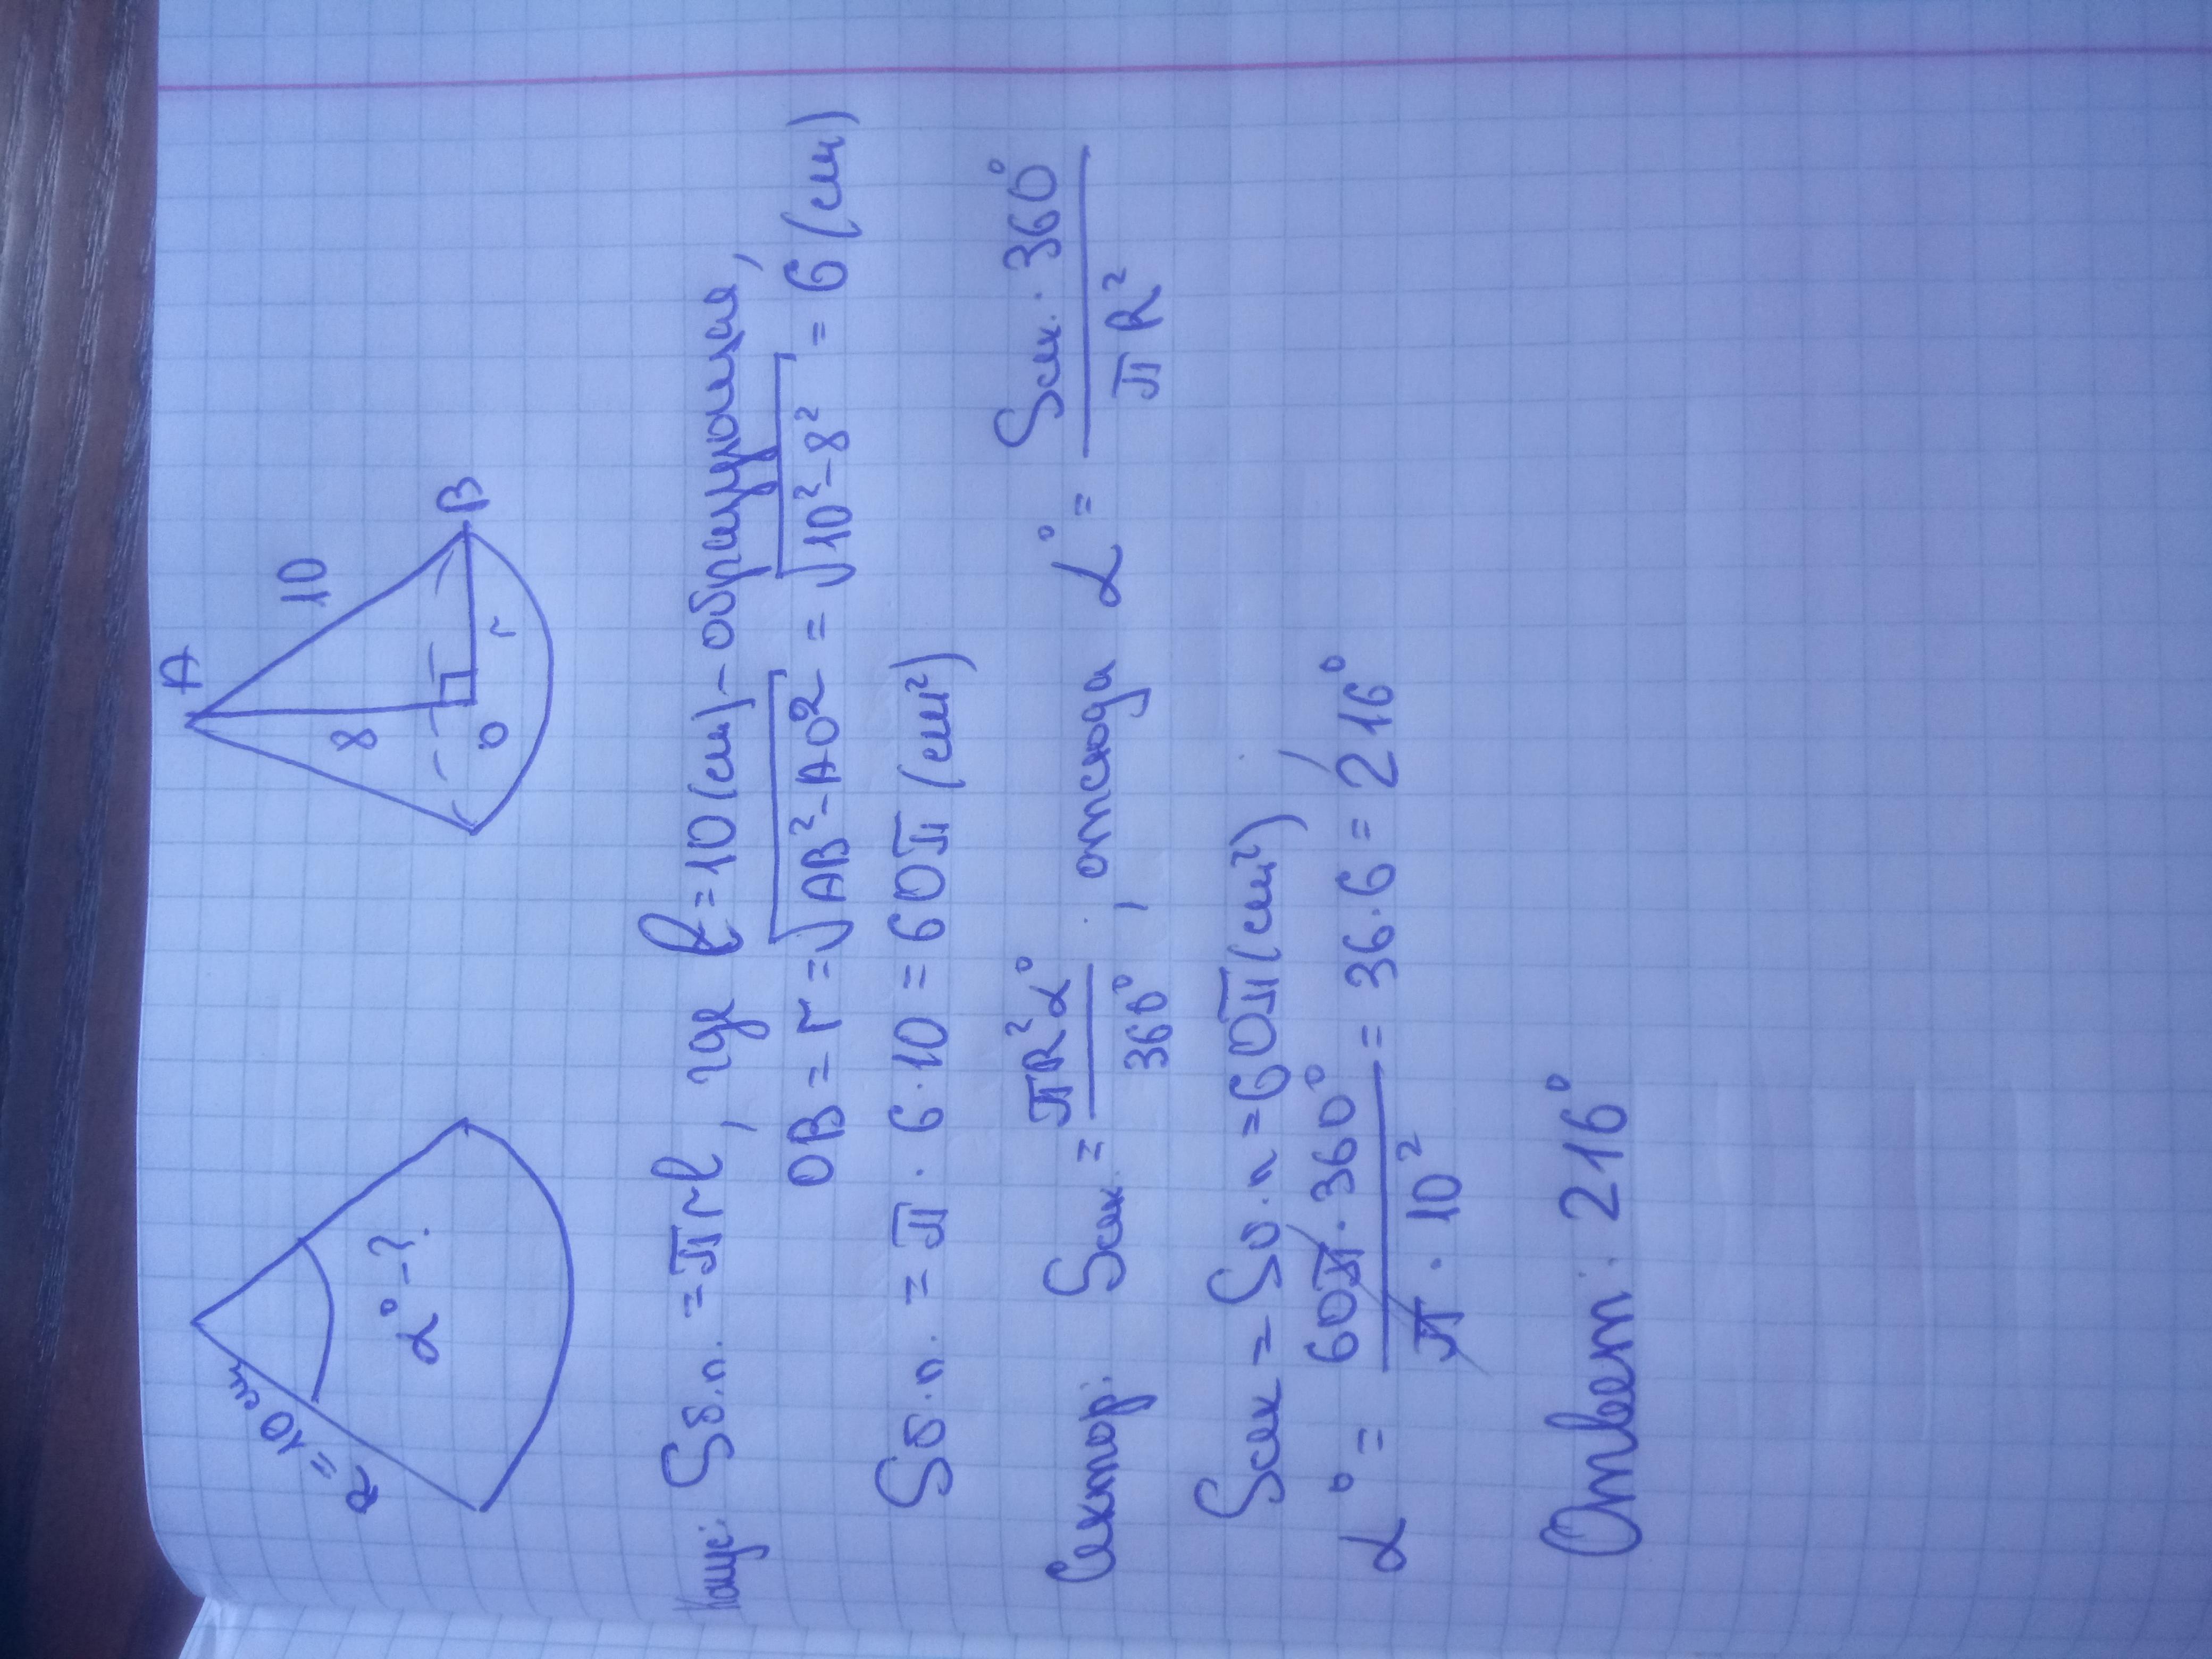 R = 10 см
α° - ?
A
10
8
O
r
B
Конус: Sб.п. = πrl, где l = 10 (см) - образующая,
OB = r = √AB² - AO² = √10² - 8² = 6 (см)
Sб.п. = π · 6 · 10 = 60π (см²)
Сектор: Sсек. = πR²α° / 360°, отсюда α° = Sсек. · 360° / πR²
Sсек = Sб.п = 60π (см²),
α° = 60π · 360° / π · 10² = 36 · 6 = 216°
Ответ: 216°